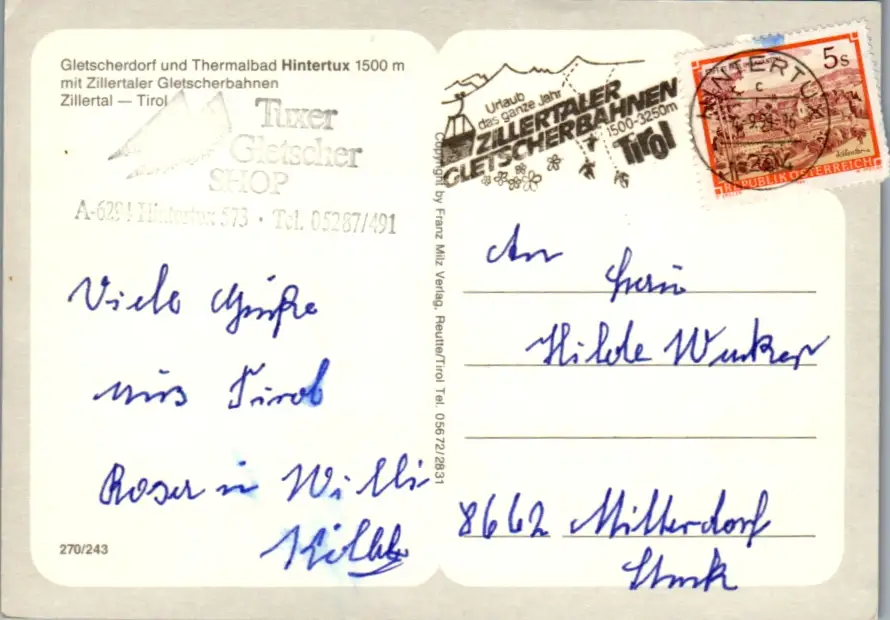 Gletscherdorf und Thermalbad Hintertux 1500 m
mit Zillertaler Gletscherbahnen
Zillertal — Tirol
Tuxer
Gletscher
SHOP
A-6294 Hintertux 573 · Tel. 05287/491
Viele Grüße
aus Tirol
Roser u Willi
270/243
Copyright by Franz Milz Verlag, Reutte/Tirol Tel. 05672/2831
Urlaub
das ganze Jahr
ZILLERTALER
GLETSCHERBAHNEN
1500-3250m
Tirol
HINTERTUX
5s
REPUBLIK ÖSTERREICH
An
Hilde
8662 Mitterdorf